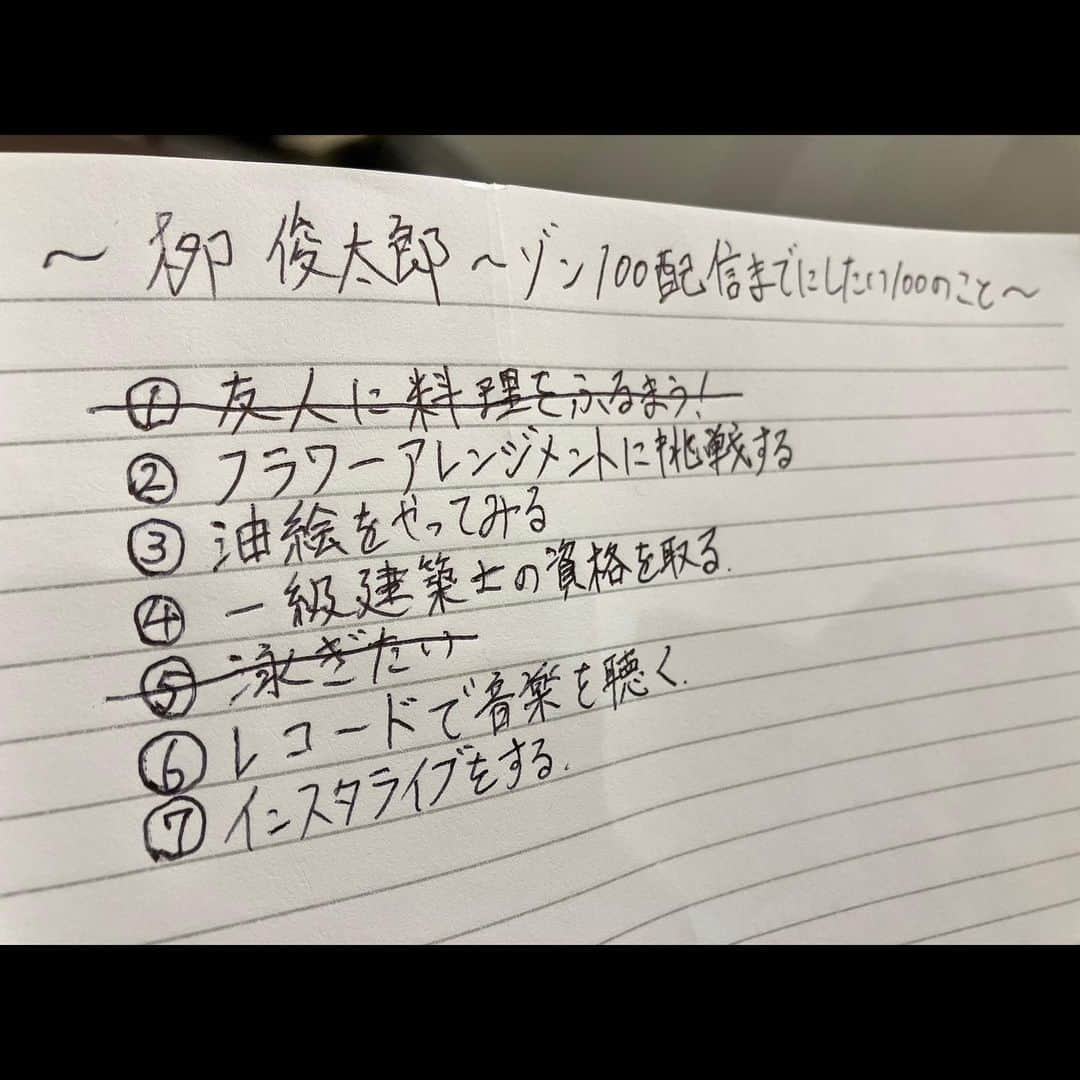 ～柳俊太郎～ゾン100配信までにしたい100のこと～
① 友人に料理をふるまう!
② フラワーアレンジメントに挑戦する
③ 油絵をやってみる
④ 一級建築士の資格を取る.
⑤ 泳ぎたい
⑥ レコードで音楽を聴く.
⑦ インスタライブをする.